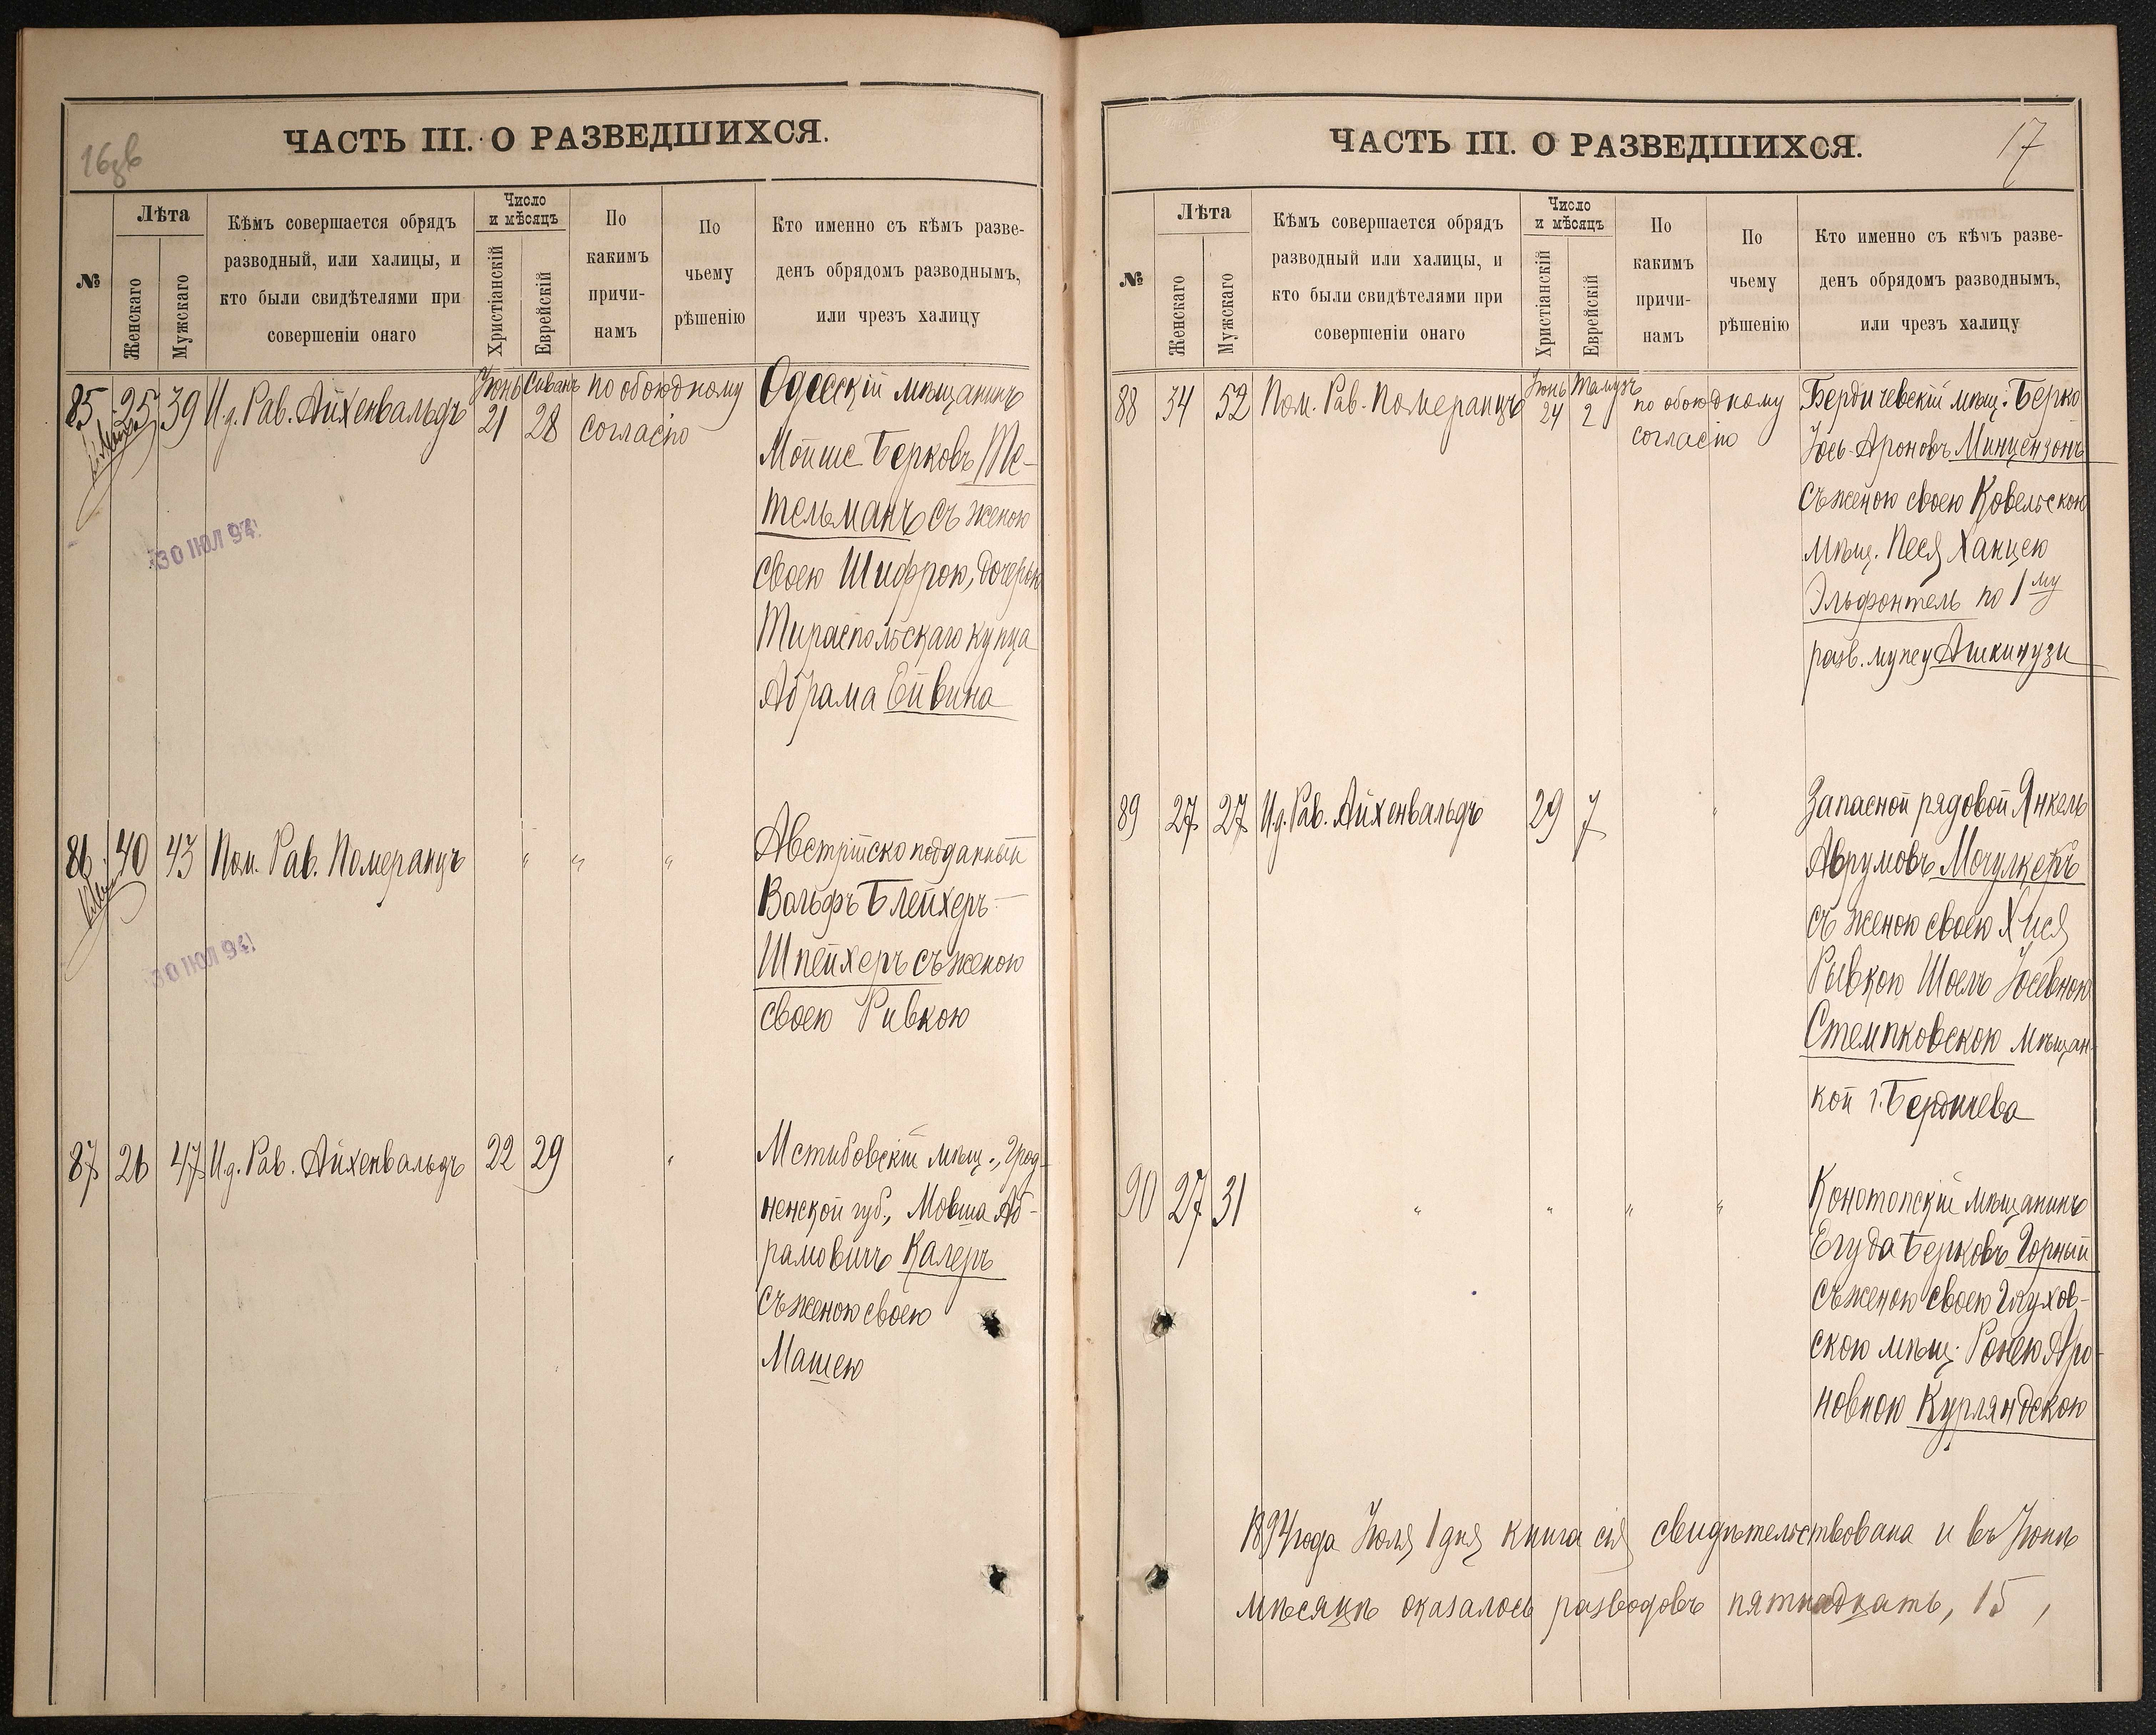 16 зв
ЧАСТЬ III. О РАЗВЕДШИХСЯ.
№
Лѣта
Женскаго
Мужскаго
Кѣмъ совершается обрядъ
разводный, или халицы, и
кто были свидѣтелями при
совершеніи онаго
Число
и мѣсяцъ
Христіанскій
Еврейскій
По
какимъ
причи-
намъ
По
чьему
рѣшенію
Кто именно съ кѣмъ разве-
денъ обрядомъ разводнымъ,
или чрезъ халицу
85 25 39 И.д. Рав. Айхенвальдъ Іюнь 21 Сиванъ 28 по обоюдному
согласію
Одесскій мѣщанинъ
Мойше Берковъ Те-
тельманъ съ женою
своею Шифрою, дочерью
Тираспольскаго купца
Абрама Ейвина
30 ІЮЛ 94
86 40 43 Пом. Рав. Померанцъ " " "
Австрійско подданный
Вольфъ Блейхеръ-
Шпейхеръ съ женою
своею Ривкою
30 ІЮЛ 94
87 26 47 И.д. Рав. Айхенвальдъ 22 29 "
Мстибовскій мѣщ., Грод-
ненской губ., Мовша Аб-
рамовичъ Калеръ
съ женою своею
Машею
17
ЧАСТЬ III. О РАЗВЕДШИХСЯ.
№
Лѣта
Женскаго
Мужскаго
Кѣмъ совершается обрядъ
разводный или халицы, и
кто были свидѣтелями при
совершеніи онаго
Число
и мѣсяцъ
Христіанскій
Еврейскій
По
какимъ
причи-
намъ
По
чьему
рѣшенію
Кто именно съ кѣмъ разве-
денъ обрядомъ разводнымъ,
или чрезъ халицу
88 34 52 Пом. Рав. Померанцъ Іюнь 24 Тамузъ 2 по обоюдному
согласію
Бердичевскій мѣщ. Берко
Іось-Ароновъ Минцензонъ
съ женою своею Ковельскою
мѣщ. Песя Ханцею
Эльфонтель по 1му
разв. мужу Ашкинузи
89 27 27 И.д. Рав. Айхенвальдъ 29 7 "
Запасной рядовой Янкель
Аврумовъ Мочулкеръ
съ женою своею Хися
Рывкою Шоелъ Іосевною
Стемпковскою мѣщан-
кой г. Бердичева
90 27 31 " " " "
Конотопскій мѣщанинъ
Егуда Берковъ Горный
съ женою своею Глухов-
скою мѣщ. Ронею Аро-
новною Курляндскою
1894 года Іюля 1 дня книга сія свидѣтельствована и въ Іюнѣ
мѣсяцѣ оказалось разводовъ пятнадцать, 15,